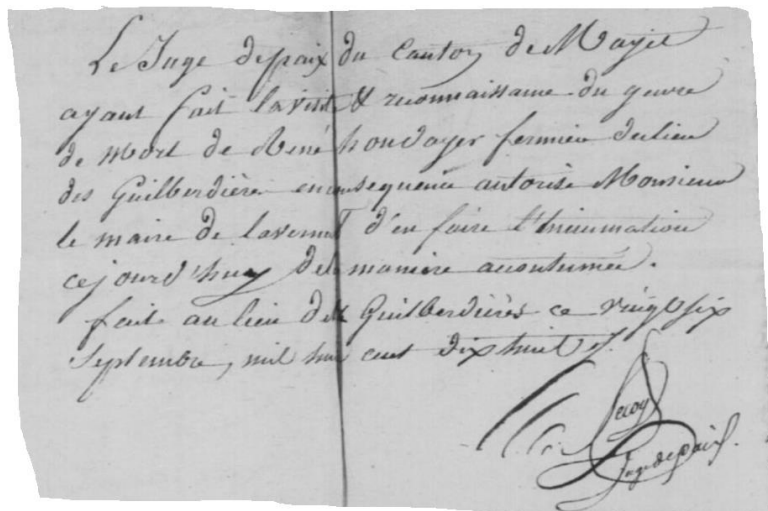 Le Juge depaix du Canton de Mayet
ayant fait la visite & reconnaissance du genre
de mort de René houdayer fermier du lieu
des Guilberdière en consequence autorise Monsieur
le maire de lavernat d'en faire l'Inhumation
cejourd'huy de la maniere acoutumée.
fait au lieu des Guilberdières ce vingt six
Septembre, mil huit cent dix huit
Lecoy
Juge de Paix.